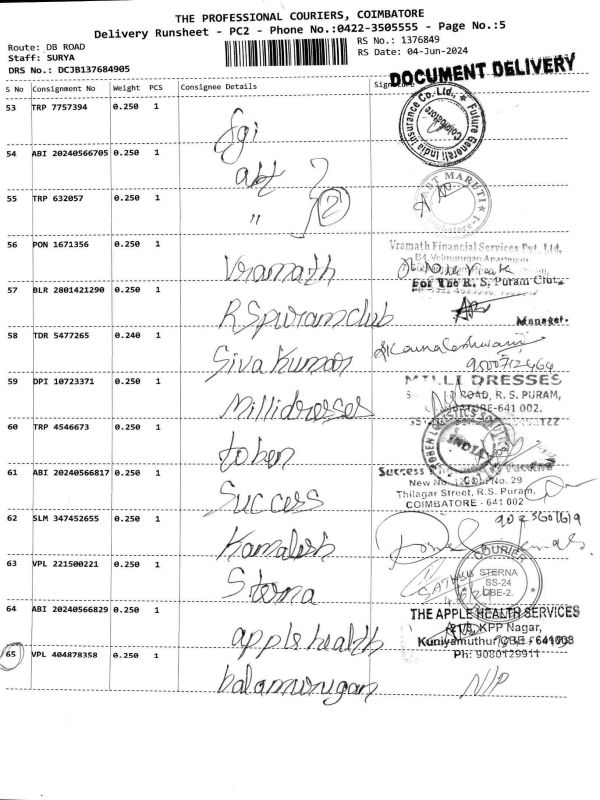 THE PROFESSIONAL COURIERS, COIMBATORE
Delivery Runsheet - PC2 - Phone No.:0422-3505555 - Page No.:5
Route: DB ROAD
Staff: SURYA
DRS No.: DCJB137684905
RS No.: 1376849
RS Date: 04-Jun-2024
DOCUMENT DELIVERY
S No Consignment No Weight PCS Consignee Details
53 TRP 7757394 0.250 1
Fgi
Future Generali India Insurance Co. Ltd.,
Coimbatore
54 ABI 20240566705 0.250 1
abt
55 TRP 632057 0.250 1
" 2
ABT MARUTI
56 PON 1671356 0.250 1
Vramath
Vramath Financial Services Pvt. Ltd.
For The R. S. Puram Club
57 BLR 2801421290 0.250 1
RSpuramclub
Manager.
58 TDR 5477265 0.240 1
Sivakumar
59 DPI 10723371 0.250 1
Millidresses
MILLI DRESSES
ROAD, R. S. PURAM,
COIMBATORE-641 002.
60 TRP 4546673 0.250 1
toben
TOBEN LOGISTICS SOLUTIONS
INDIA
61 ABI 20240566817 0.250 1
Success
Success
No. 29
Thilagar Street, R.S. Puram,
COIMBATORE - 641 002
62 SLM 347452655 0.250 1
Kamalesh
63 VPL 221500221 0.250 1
Sterna
COURIER
STERNA
SS-24
CBE-2.
64 ABI 20240566829 0.250 1
apple health
THE APPLE HEALTH SERVICES
KPP Nagar,
Kuniyamuthur, CBE - 641008
Ph: 9080129911
65 VPL 404878358 0.250 1
balamurugan
N/P